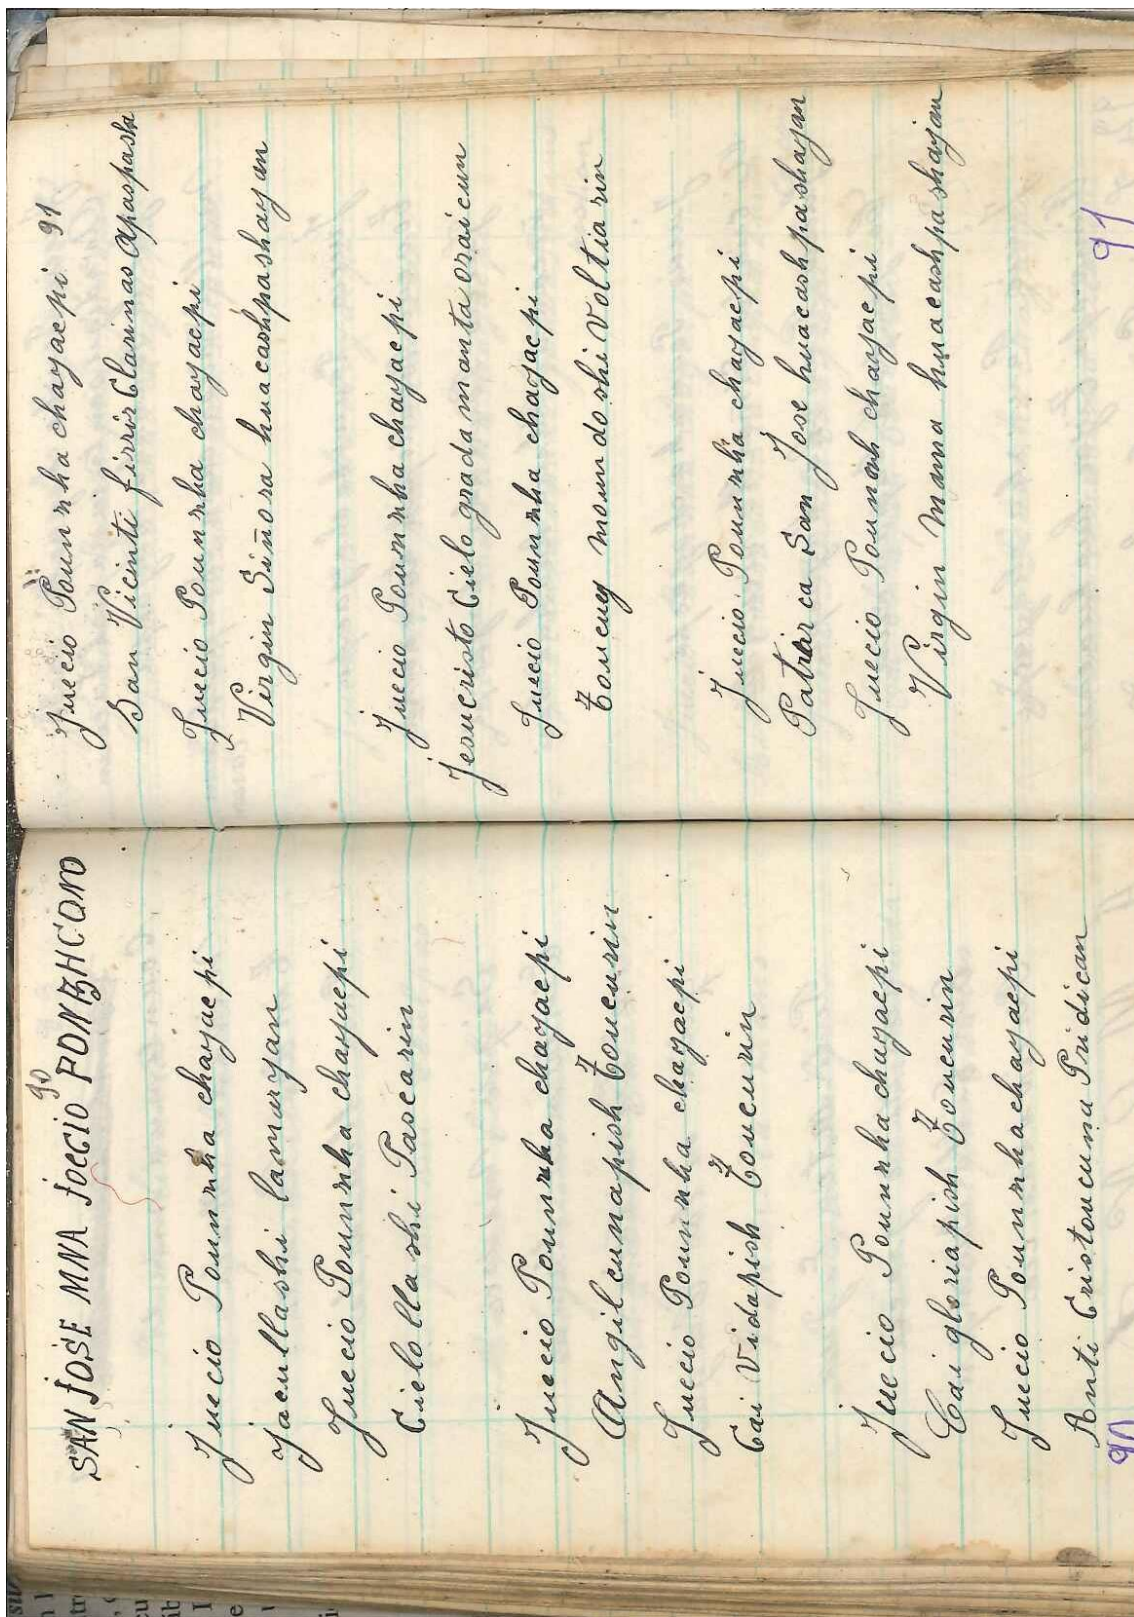 90
SAN JOSE MNA JOECIO PONZHCON
Juecio Pounzha chayaepi
Yacullashi lamuryan
Juecio Pounzha chayaepi
Cielo llashi Pascarin
Juecio Pounzha chayaepi
Angilcunapish Toucurin
Juecio Pounzha chayaepi
Cai Vidapish Toucurin
Juecio Pounzha chayaepi
Cai gloriapish Toucurin
Juecio Pounzha chayaepi
Anti Cristoucuna Pridican
90
Juecio Pounzha chayaepi 91
San Vicinti firrir Clarinas Apaspasha
Juecio Pounzha chayaepi
Virgin Siñora huacashpashayan
Juecio Pounzha chayaepi
Jesucristo Cielo gradamanta oraicun
Juecio Pounzha chayaepi
Toucuy moundoshi Voltiarin
Juecio Pounzha chayaepi
Patriarca San Jose huacashpashayan
Juecio Pounzh chayaepi
Virgin Mama huacashpashayan
91